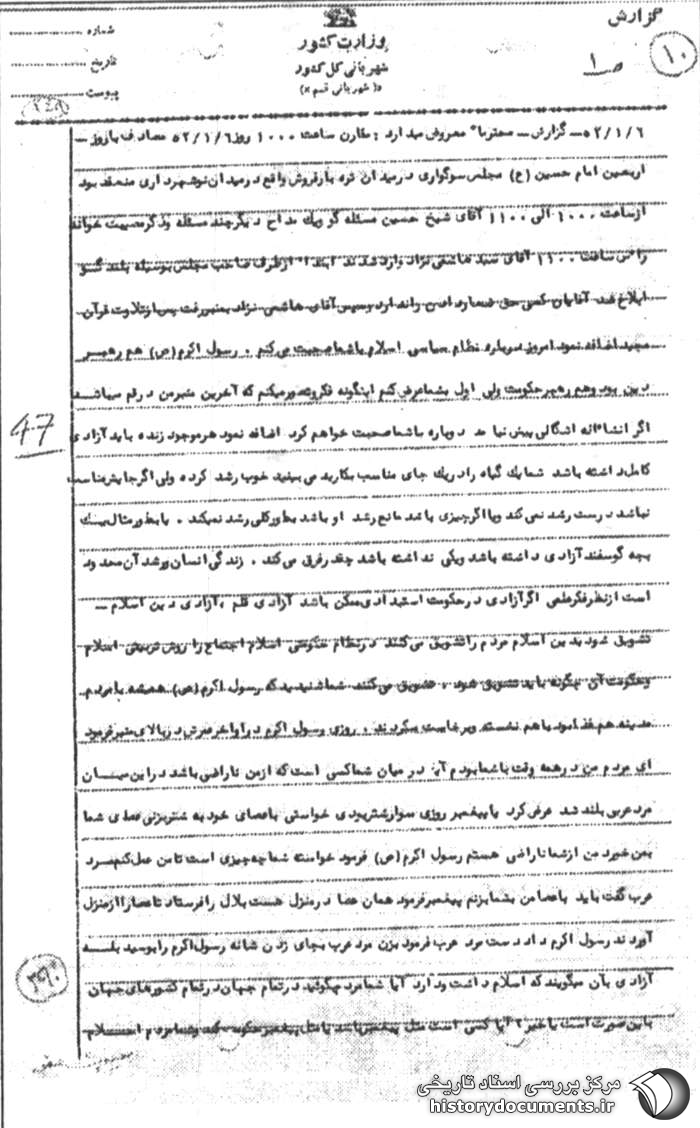 گزارش
وزارت کشور
شهربانی کل کشور
( شهربانی قم x )
شماره
تاریخ
پیوست
۱۰
ص ۱
۵۲/۱/۶ - گزارش - محترما" معروض میدارد : مقارن ساعت ۱۰۰۰ روز ۵۲/۱/۶ مصادف با روز -
اربعین امام حسین (ع) مجلس سوگواری در میدان تره بار فروش واقع در میدان نو شهرداری منعقد بود
از ساعت ۱۰۰۰ الی ۱۱۰۰ آقای شیخ حسین مسئله گو و یک مداح دیگر چند مسئله و ذکر مصیبت خواند
راس ساعت ۱۱۰۰ آقای سید هاشمی نژاد وارد شدند ابتدا" از طرف صاحب مجلس بوسیله بلند گو
ابلاغ شد آقایان کسی حق ندارد سپس آقای هاشمی نژاد بمنبر رفت پس از تلاوت قرآن
مجید اضافه نمود امروز درباره نظام سیاسی اسلام با شما صحبت می کنم . رسول اکرم (ص) هم رهبر
دین بود و هم رهبر حکومت ولی اول بشما عرض کنم اینگونه فکر و تصور میکنم که آخرین منبر من در قم میباشد
اگر انشاءاله اشکالی پیش نیامد دوباره با شما صحبت خواهم کرد اضافه نمود هر موجود زنده باید آزادی
کامل داشته باشد شما یک گیاه را در یک جای مناسب بکارید می بینید خوب رشد کرده ولی اگر جایش مناسب
نباشد درست رشد نمی کند و یا اگر چیزی باشد مانع رشد او باشد بطور کلی رشد نمیکند . یا بطور مثال یک
بچه گوسفند آزادی داشته باشد و یکی نداشته باشد چقدر فرق می کند . زندگی انسان و رشد آن محدود
است از نظر فکر علمی اگر آزادی در حکومت استبدادی ممکن باشد آزادی قلم ، آزادی دین اسلام -
تشویق شود بدین اسلام مردم را تشویق می کنند در نظام حکومتی اسلام اجتماع را روش تربیتی اسلام
و حکومت آن چگونه باید تشویق شود ، تشویق می کنند شما شنیدید که رسول اکرم (ص) همیشه با مردم
مدینه هم غذا بود با هم نشسته و برخاست میکردند . روزی رسول اکرم در اواخر عمرش در بالای منبر فرمود
ای مردم من در همه وقت با شما بودم آیا در میان شما کسی است که از من ناراضی باشد در این میان
مرد عربی بلند شد عرض کرد یا پیغمبر روزی سوار شتر بودی خواستی با عصای خود به شتر بزنی عصای شما
بمن خورد من از شما ناراضی هستم رسول اکرم (ص) فرمود خواسته شما چه چیزی است تا من عمل کنم مرد
عرب گفت باید با عصا من بشما بزنم پیغمبر فرمود همان عصا در منزل هست بلال را فرستاد تا عصا را از منزل
آوردند رسول اکرم داد دست مرد عرب فرمود بزن مرد عرب بجای زدن شانه رسول اکرم را بوسید بلسه
آزادی بآن میگویند که اسلام داشت و دارد آیا شما مردم میگوئید در تمام جهان در تمام کشورهای جهان
باین صورت است یا خیر ؟ آیا کسی است مثل پیغمبر باشد یا مثل پیغمبر حکومت کند و شما مردم اسلام
47
مرکز بررسی اسناد تاریخی
historydocuments.ir